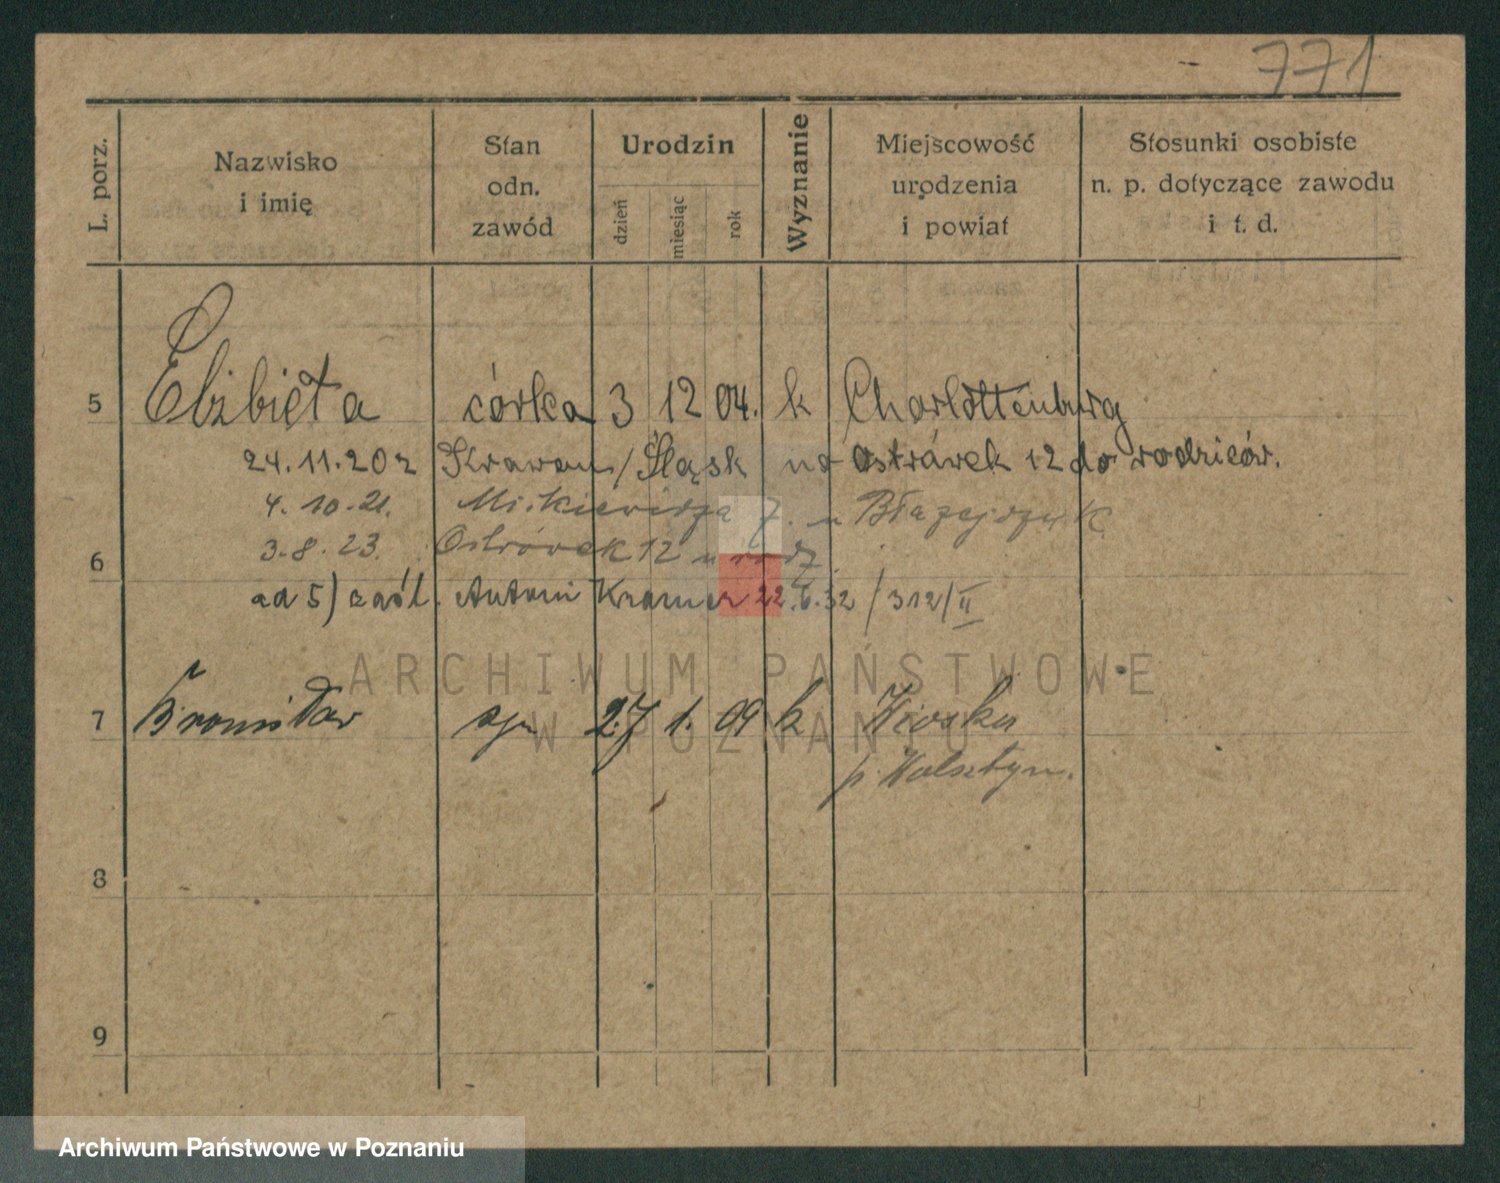 771
L. porz.
Nazwisko
i imię
Stan
odn.
zawód
Urodzin
dzień
miesiąc
rok
Wyznanie
Miejscowość
urodzenia
i powiat
Stosunki osobiste
n. p. dotyczące zawodu
i t. d.
5 Elżbieta córka 3 12 04. k Charlottenburg
24.11.20 z /Śląsk na Ostrówek 12 do rodziców.
4.10.21. 7. u
3.8.23. Ostrówek 12 u rodz
6
ad 5) zaśl. Antoni Kramer 22.6.32 /312/II
ARCHIWUM PAŃSTWOWE
W POZNANIU
7 Bronisław syn 27 1. 09 k
p. Wolsztyn.
8
9
Archiwum Państwowe w Poznaniu